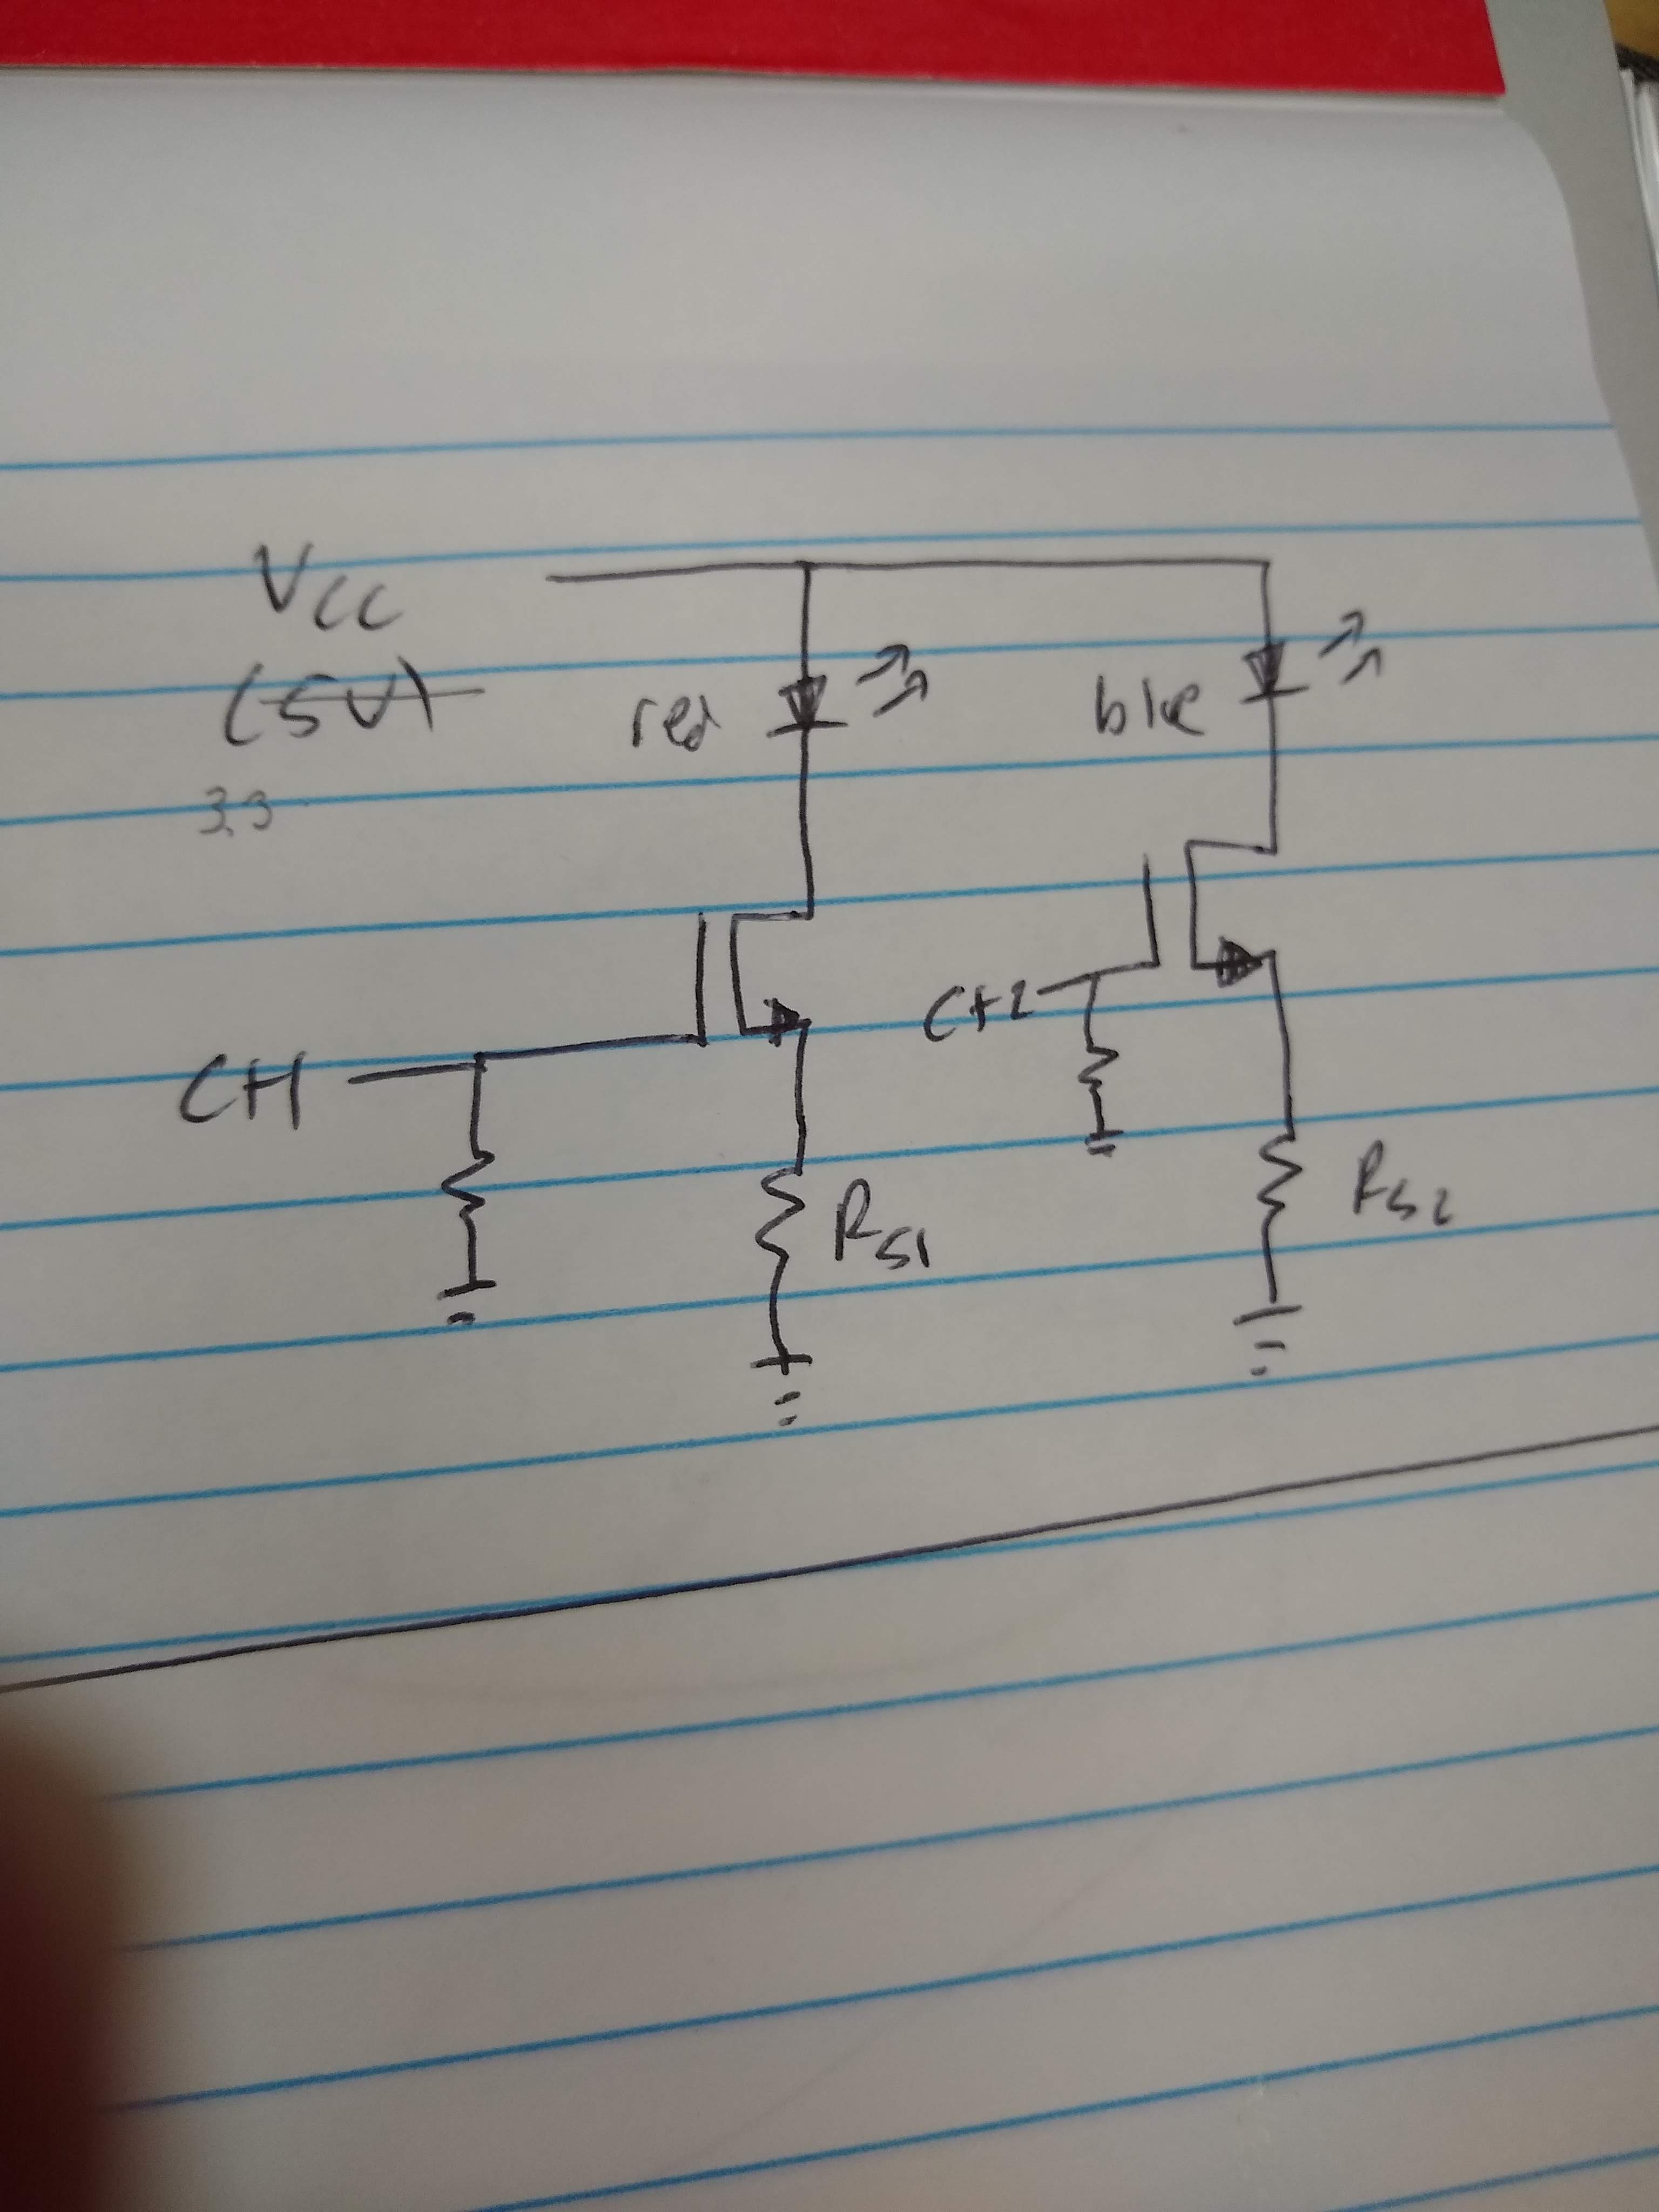 VCC
(5V)
3.3
red
blue
CH1
CH2
RS1
RS2